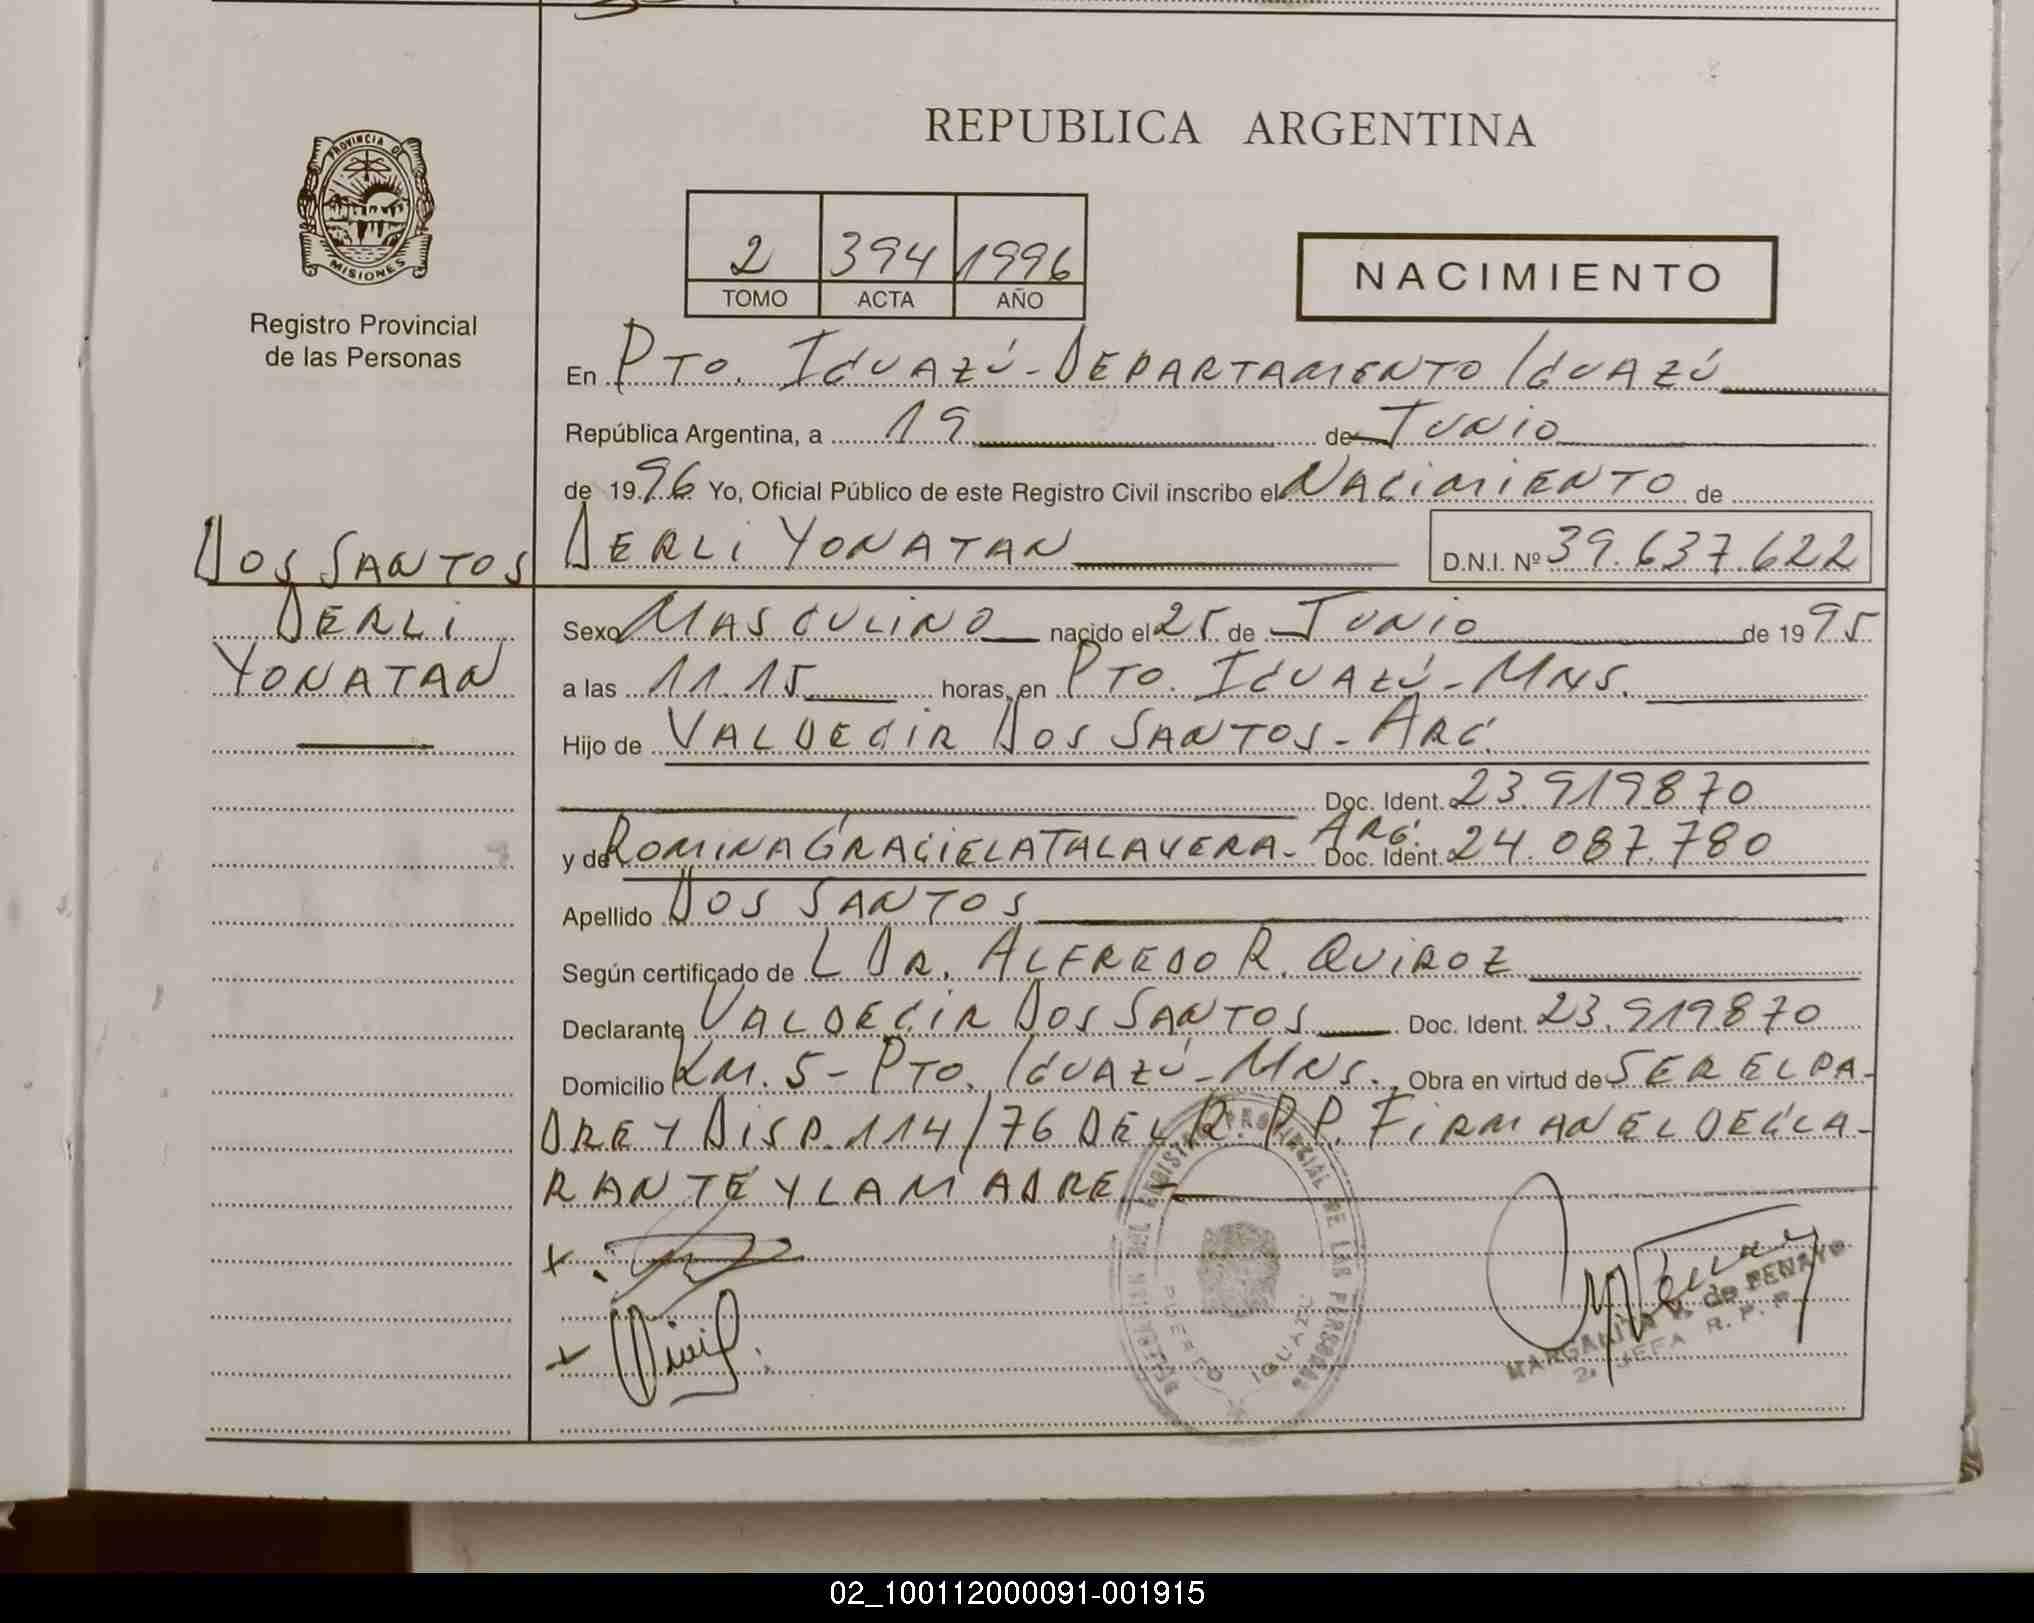 REPUBLICA ARGENTINA
PROVINCIA DE
MISIONES
Registro Provincial
de las Personas
2 394 1996
TOMO ACTA AÑO
NACIMIENTO
En PTO. IGUAZÚ - DEPARTAMENTO IGUAZÚ
República Argentina, a 19 de JUNIO
de 1996 Yo, Oficial Público de este Registro Civil inscribo el NACIMIENTO de
DERLI YONATAN D.N.I. Nº 39.637.622
DOS SANTOS
DERLI
YONATAN
Sexo MASCULINO nacido el 25 de JUNIO de 1995
a las 11.15 horas, en PTO. IGUAZÚ - MNS.
Hijo de VALDECIR DOS SANTOS - ARG.
Doc. Ident. 23.919.870
y de ROMINA GRACIELA TALAVERA - ARG. Doc. Ident. 24.087.780
Apellido DOS SANTOS
Según certificado de L DR. ALFREDO R. QUIROZ
Declarante VALDECIR DOS SANTOS Doc. Ident. 23.919.870
Domicilio KM. 5 - PTO. IGUAZÚ - MNS. Obra en virtud de SER EL PA-
DRE Y DISP. 114/76 DEL R. P. P. FIRMAN EL DECLA-
RANTE Y LA MADRE. -
REGISTRO PROVINCIAL DE LAS PERSONAS
PUERTO IGUAZU
MARGARITA V. de PENAYO
2. JEFA R. P. P.
02_100112000091-001915